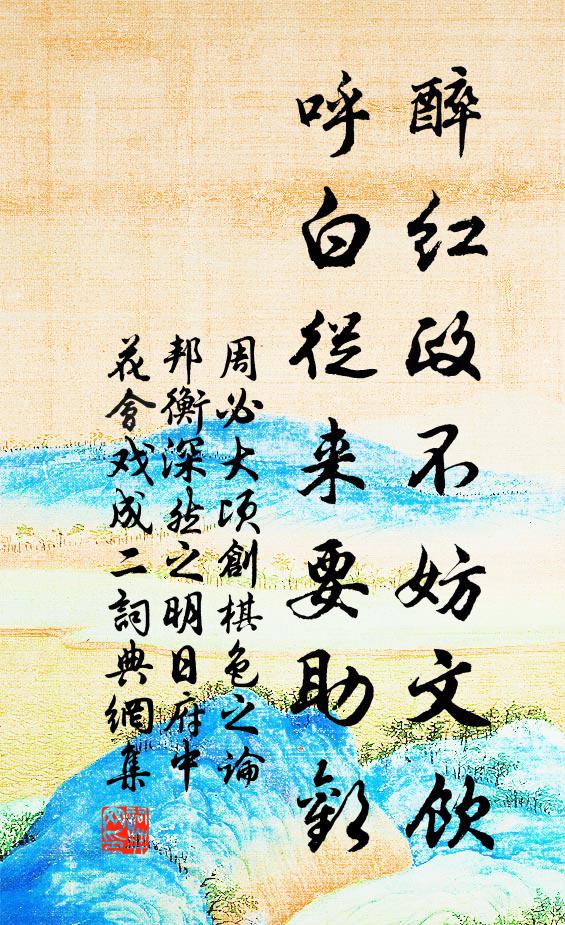 醉红政不妨文饮
呼白從来要助歡
周必大顷創棋色之論
邦衡深然之明日府中
花會戏成二詞典網集